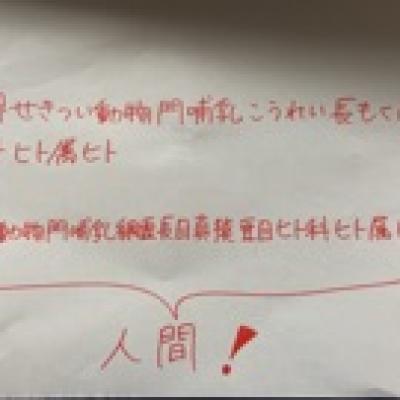 せきつい動物門哺乳こうれい長もく
ヒト属ヒト
動物門哺乳綱霊長目真猿亜目ヒト科ヒト属
人間!